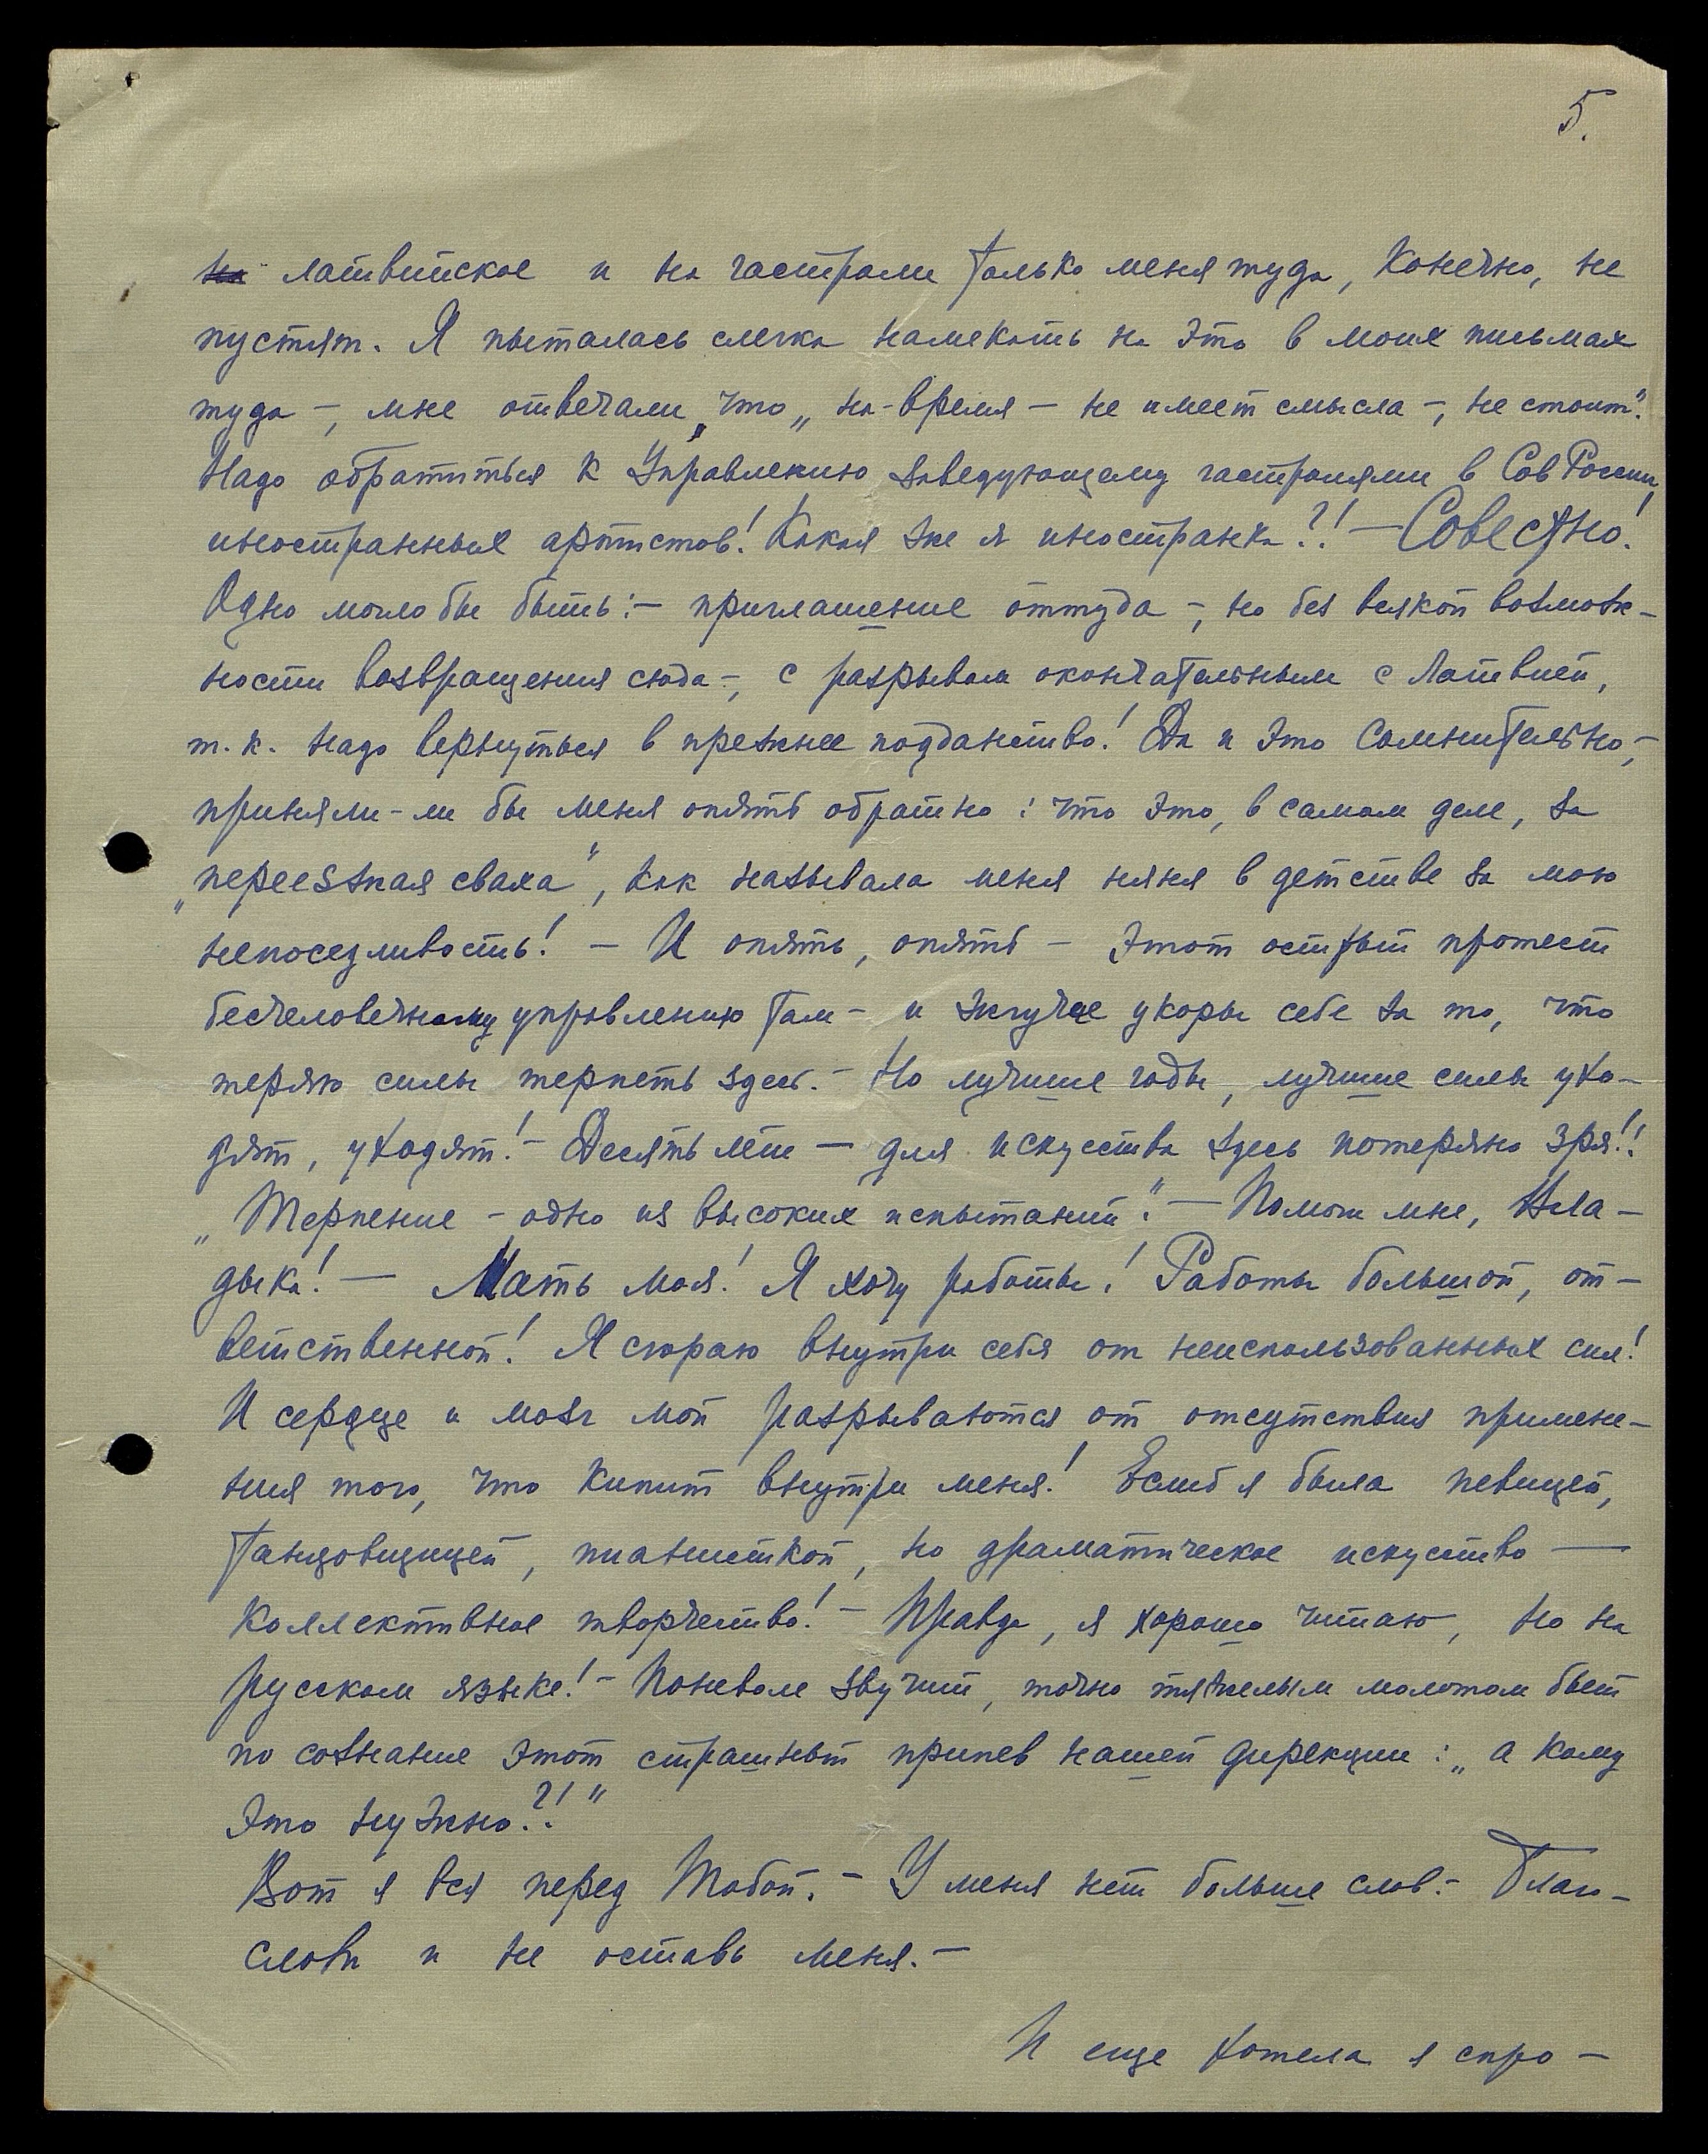 5.
на латвийское и на гастроли только меня туда, конечно, не
пустят. Я пыталась слегка намекать на это в моих письмах
туда -, мне отвечали, что „на-время - не имеет смысла -, не стоит".
Надо обратиться к Управлению, заведующему гастролями в Сов России,
иностранных артистов! Какая же я иностранка?! — Совестно!
Одно могло бы быть: - приглашение оттуда -, но без всякой возмож-
ности возвращения сюда -, с разрывом окончательным с Латвией,
т. к. надо вернуться в прежнее подданство! Да и это сомнительно, -
приняли-ли бы меня опять обратно: что это, в самом деле, за
„переезжая сваха", как называла меня няня в детстве за мою
непоседливость! - И опять, опять - этот острый протест
бесчеловечному управлению там - и жгучие укоры себе за то, что
теряю силы терпеть здесь. - Но лучшие годы, лучшие силы ухо-
дят, уходят! - Десять лет — для искусства здесь потеряно зря!!
„Терпение - одно из высоких испытаний". — Помоги мне, Вла-
дыка! — Мать моя! Я хочу работы! Работы большой, от-
ветственной! Я сгораю внутри себя от неиспользованных сил!
И сердце и мозг мой разрываются от отсутствия примене-
ния того, что кипит внутри меня! Еслиб я была певицей,
танцовщицей, пианисткой, но драматическое искусство —
коллективное творчество! - Правда, я хорошо читаю, но на
русском языке! - Поневоле звучит, точно тяжелым молотом бьет
по сознание этот страшный припев нашей дирекции: „а кому
это нужно?!"
Вот я вся перед Тобой. - У меня нет больше слов. - Благо-
слови и не оставь меня. -
И еще хотела я спро-